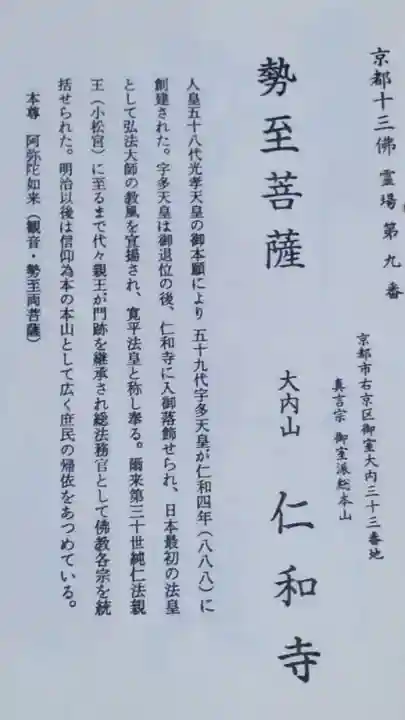 京都十三佛霊場第九番
京都市右京区御室大内三十三番地
真言宗 御室派総本山
勢至菩薩
大内山 仁和寺
人皇五十八代光孝天皇の御本願により 五十九代宇多天皇が仁和四年(八八八)に
創建された。宇多天皇は御退位の後、仁和寺に入御落飾せられ、日本最初の法皇
として弘法大師の教風を宣揚され、寛平法皇と称し奉る。爾来第三十世純仁法親
王(小松宮)に至るまで代々親王が門跡を継承され総法務官として佛教各宗を統
括せられた。明治以後は信仰為本の本山として広く庶民の帰依をあつめている。
本尊 阿弥陀如来(観音・勢至両菩薩)